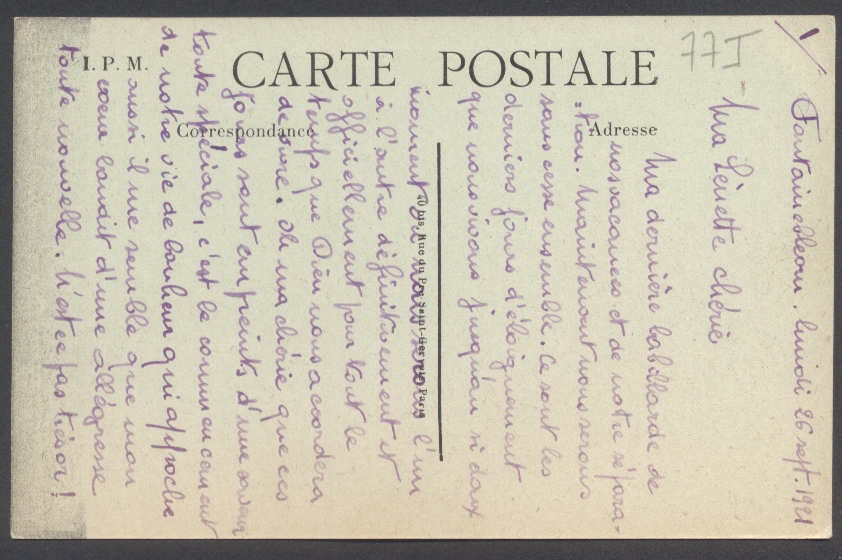 I. P. M.
CARTE POSTALE
Correspondance
Adresse
77J
1
40 bis, Rue du Pré Saint-Gervais, Paris
Fontainebleau. lundi 26 sept. 1921
Ma Linette chérie
Ma dernière babillarde de
nos vacances et de notre sépara-
tion. Maintenant nous serons
sans cesse ensemble. Ce sont les
derniers jours d'éloignement
que nous vivons jusqu'au si doux
moment où nous serons l'un
à l'autre définitivement et
officiellement pour tout le
temps que Dieu nous accordera
de vivre. Oh ma chérie que ces
jours sont empreints d'une saveur
toute spéciale, c'est le commencement
de notre vie de bonheur qui approche
aussi il me semble que mon
coeur bondit d'une allégresse
toute nouvelle. N'est ce pas trésor!